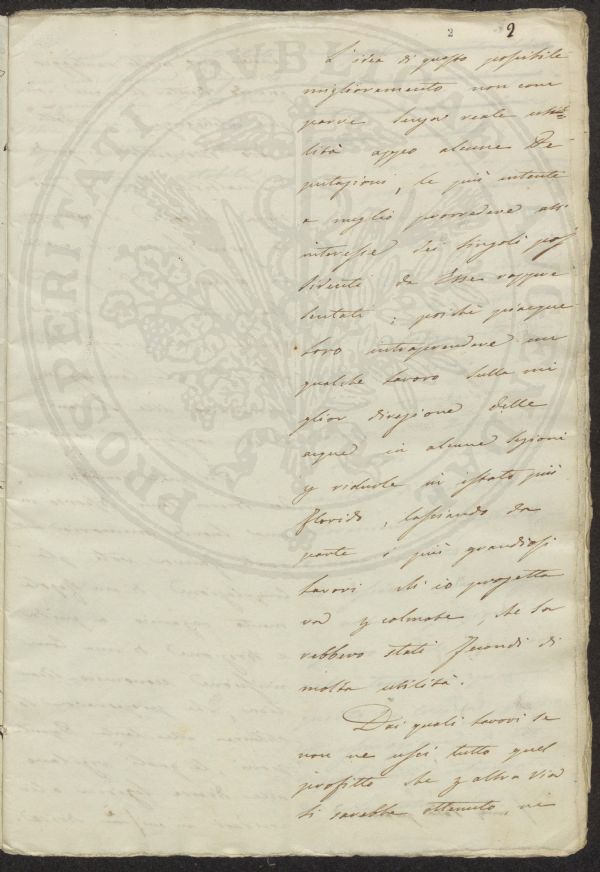 2 2
PROSPERITATI PVBLICAE AVGENDAE
L'idea di questo possibile
miglioramento non com
parve senza reale uti
lità appo alcune De
putazioni, le più intente
a meglio provvedere all'
interesse dei singoli pos
sidenti da Esse rappre
sentati; poichè piacque
loro intraprendere un
qualche lavoro sulla mi
glior direzione delle
acque in alcune sezioni
p ridurle in istato più
florido, lasciando da
parte i più grandiosi
lavori ch'io progetta
va p colmate, che sa
rebbero stati fecondi di
molta utilità.
Dai quali lavori se
non ne uscì tutto quel
profitto che p altra via
si sarebbe ottenuto, ne